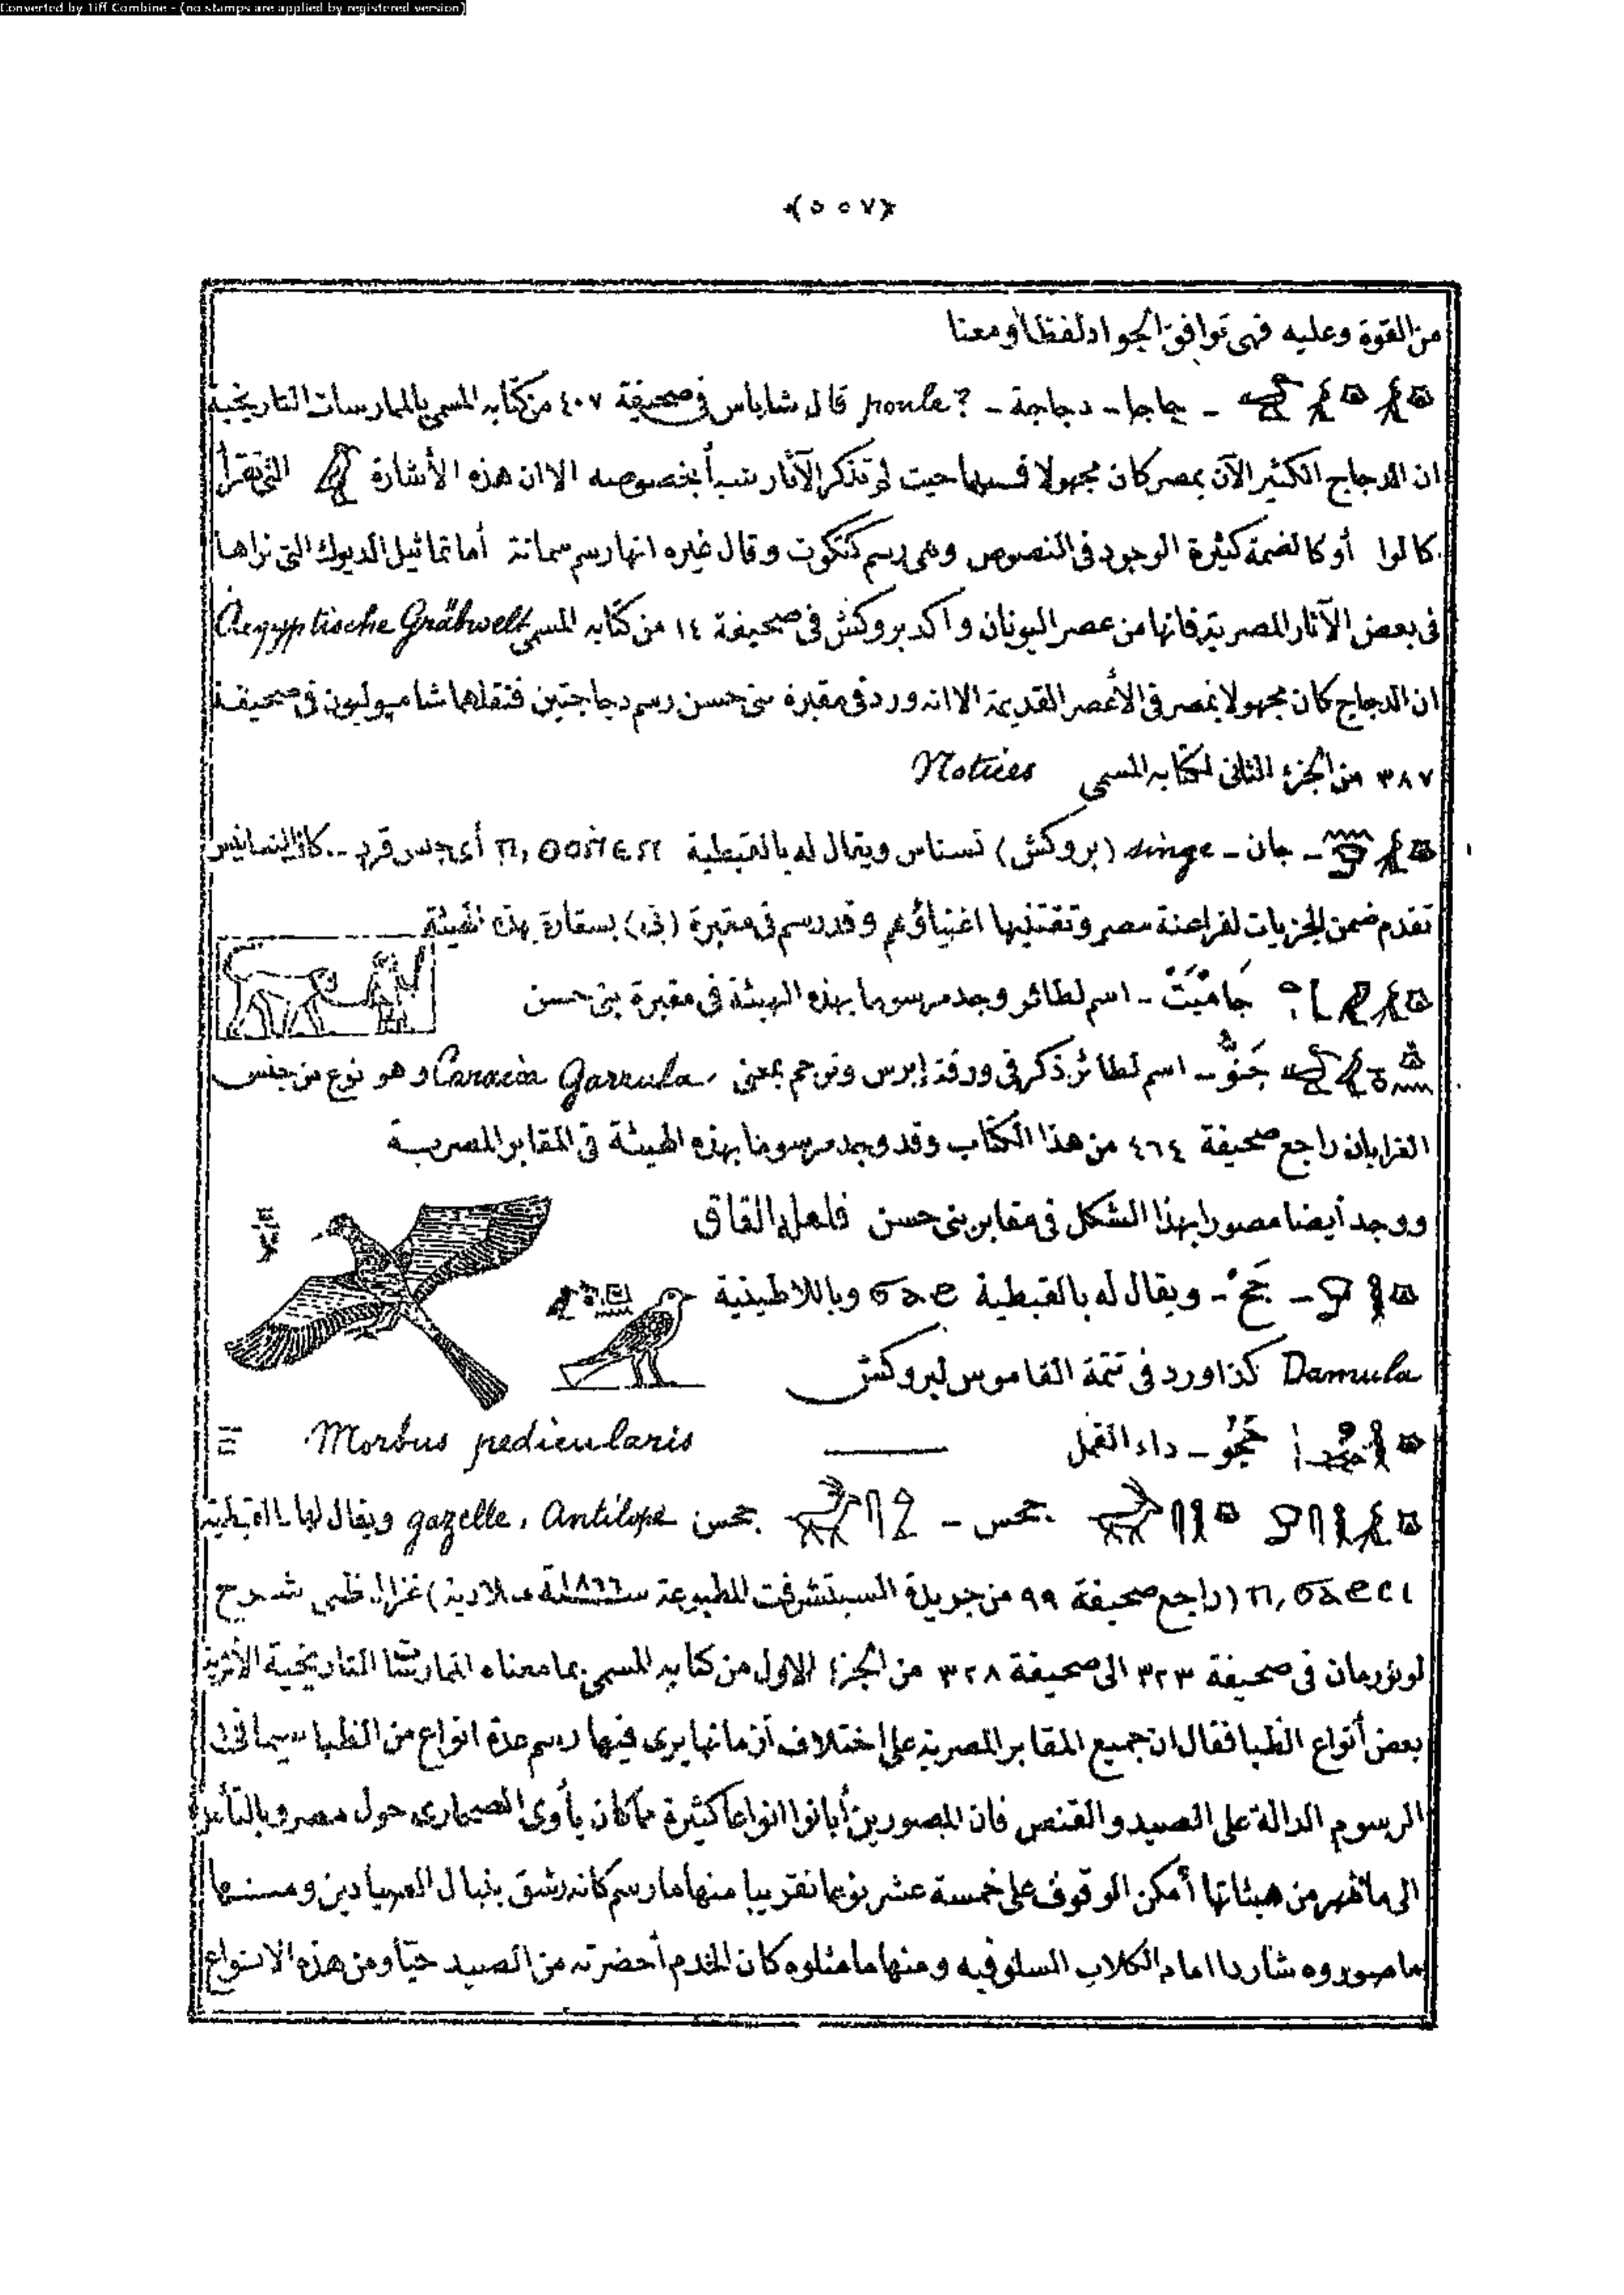 Converted by Tiff Combine - (no stamps are applied by registered version)
﴿٥٥٧﴾
من القوة وعليه فهى توافق الجواد لفظا ومعنا
– جاجا – دجاجة – poule? قال شاباس فى صحيفة ٤٠٧ من كتابه المسمى بالممارسات التاريخية
ان الدجاج الكثير الآن بمصر كان مجهولا قديما حيث لم تذكر الآثار شيأ بخصوصه الا ان هذه الأشارة التى تقرأ
كالوا أو كا لضمة كثيرة الوجود فى النصوص وهى رسم كتكوت وقال غيره انها رسم سمانة أما تماثيل الديوك التى نراها
فى بعض الآثار المصرية فانها من عصر اليونان وأكد بروكش فى صحيفة ١٤ من كتابه المسمى Aegyptische Gräbwelt
ان الدجاج كان مجهولا بمصر فى الأعصر القديمة الا انه ورد فى مقبرة بنى حسن رسم دجاجتين فنقلها شامبوليون فى صحيفة
٣٨٧ من الجزء الثانى لكتابه المسمى Notices
– جان – singe (بروكش) نسناس ويقال له بالقبطية أى جنس قرد – كان النسانيس
تقدم ضمن الجزيات لفراعنة مصر وتقتنيها اغنياؤهم وقد رسم فى مقبرة (تى) بسقارة بهذه الهيئة
– اسم لطائر وجد مرسوما بهذه الهيئة فى مقبرة بنى حسن
جَنُوُّ – اسم لطائر ذكر فى ورقة إبرس وترجم بمعنى Garrula وهو نوع من جنس
الغرابان راجع صحيفة ٤٦٤ من هذا الكتاب وقد وجد مرسوما بهذه الهيئة فى المقابر المصرية
ووجد أيضا مصورا بهذا الشكل فى مقابر بنى حسن فلعله القاق
– جَحْ – ويقال له بالقبطية ϭⲁϩⲉ وباللاطينية
Damula كذا ورد فى تتمة القاموس لبروكش
– داء القمل Morbus pedicularis
جحس – جحس gazelle, Antilope ويقال لها بالقبطية
ⲡ,ϭⲁϩⲥⲓ (راجع صحيفة ٩٩ من جريدة السيتشرفت المطبوعة سنة ١٨٦٦ ميلادية) غزال ظبى شرح
لونورمان فى صحيفة ٣٢٣ الى صحيفة ٣٢٨ من الجزء الاول من كتابه المسمى بما معناه التاريخية الأثرية
بعض أنواع الظبا فقال ان جميع المقابر المصرية على اختلاف أزمانها يرى فيها رسم عدة انواع من الظبا سيما فى
الرسوم الدالة على الصيد والقنص فان المصورين أبانوا انواعا كثيرة مما كان يأوى الصحارى حول مصر وبالتأمل
الى ما ظهر من هيئاتها أمكن الوقوف على خمسة عشر نوعا تقريبا منها ما رسم كانه رشق بنبال الصيادين ومنها
ما صوروه شاردا امام الكلاب السلوقيه ومنها ما مثلوه كان الخدم أحضرته من الصيد حيّا ومن هذه الانواع